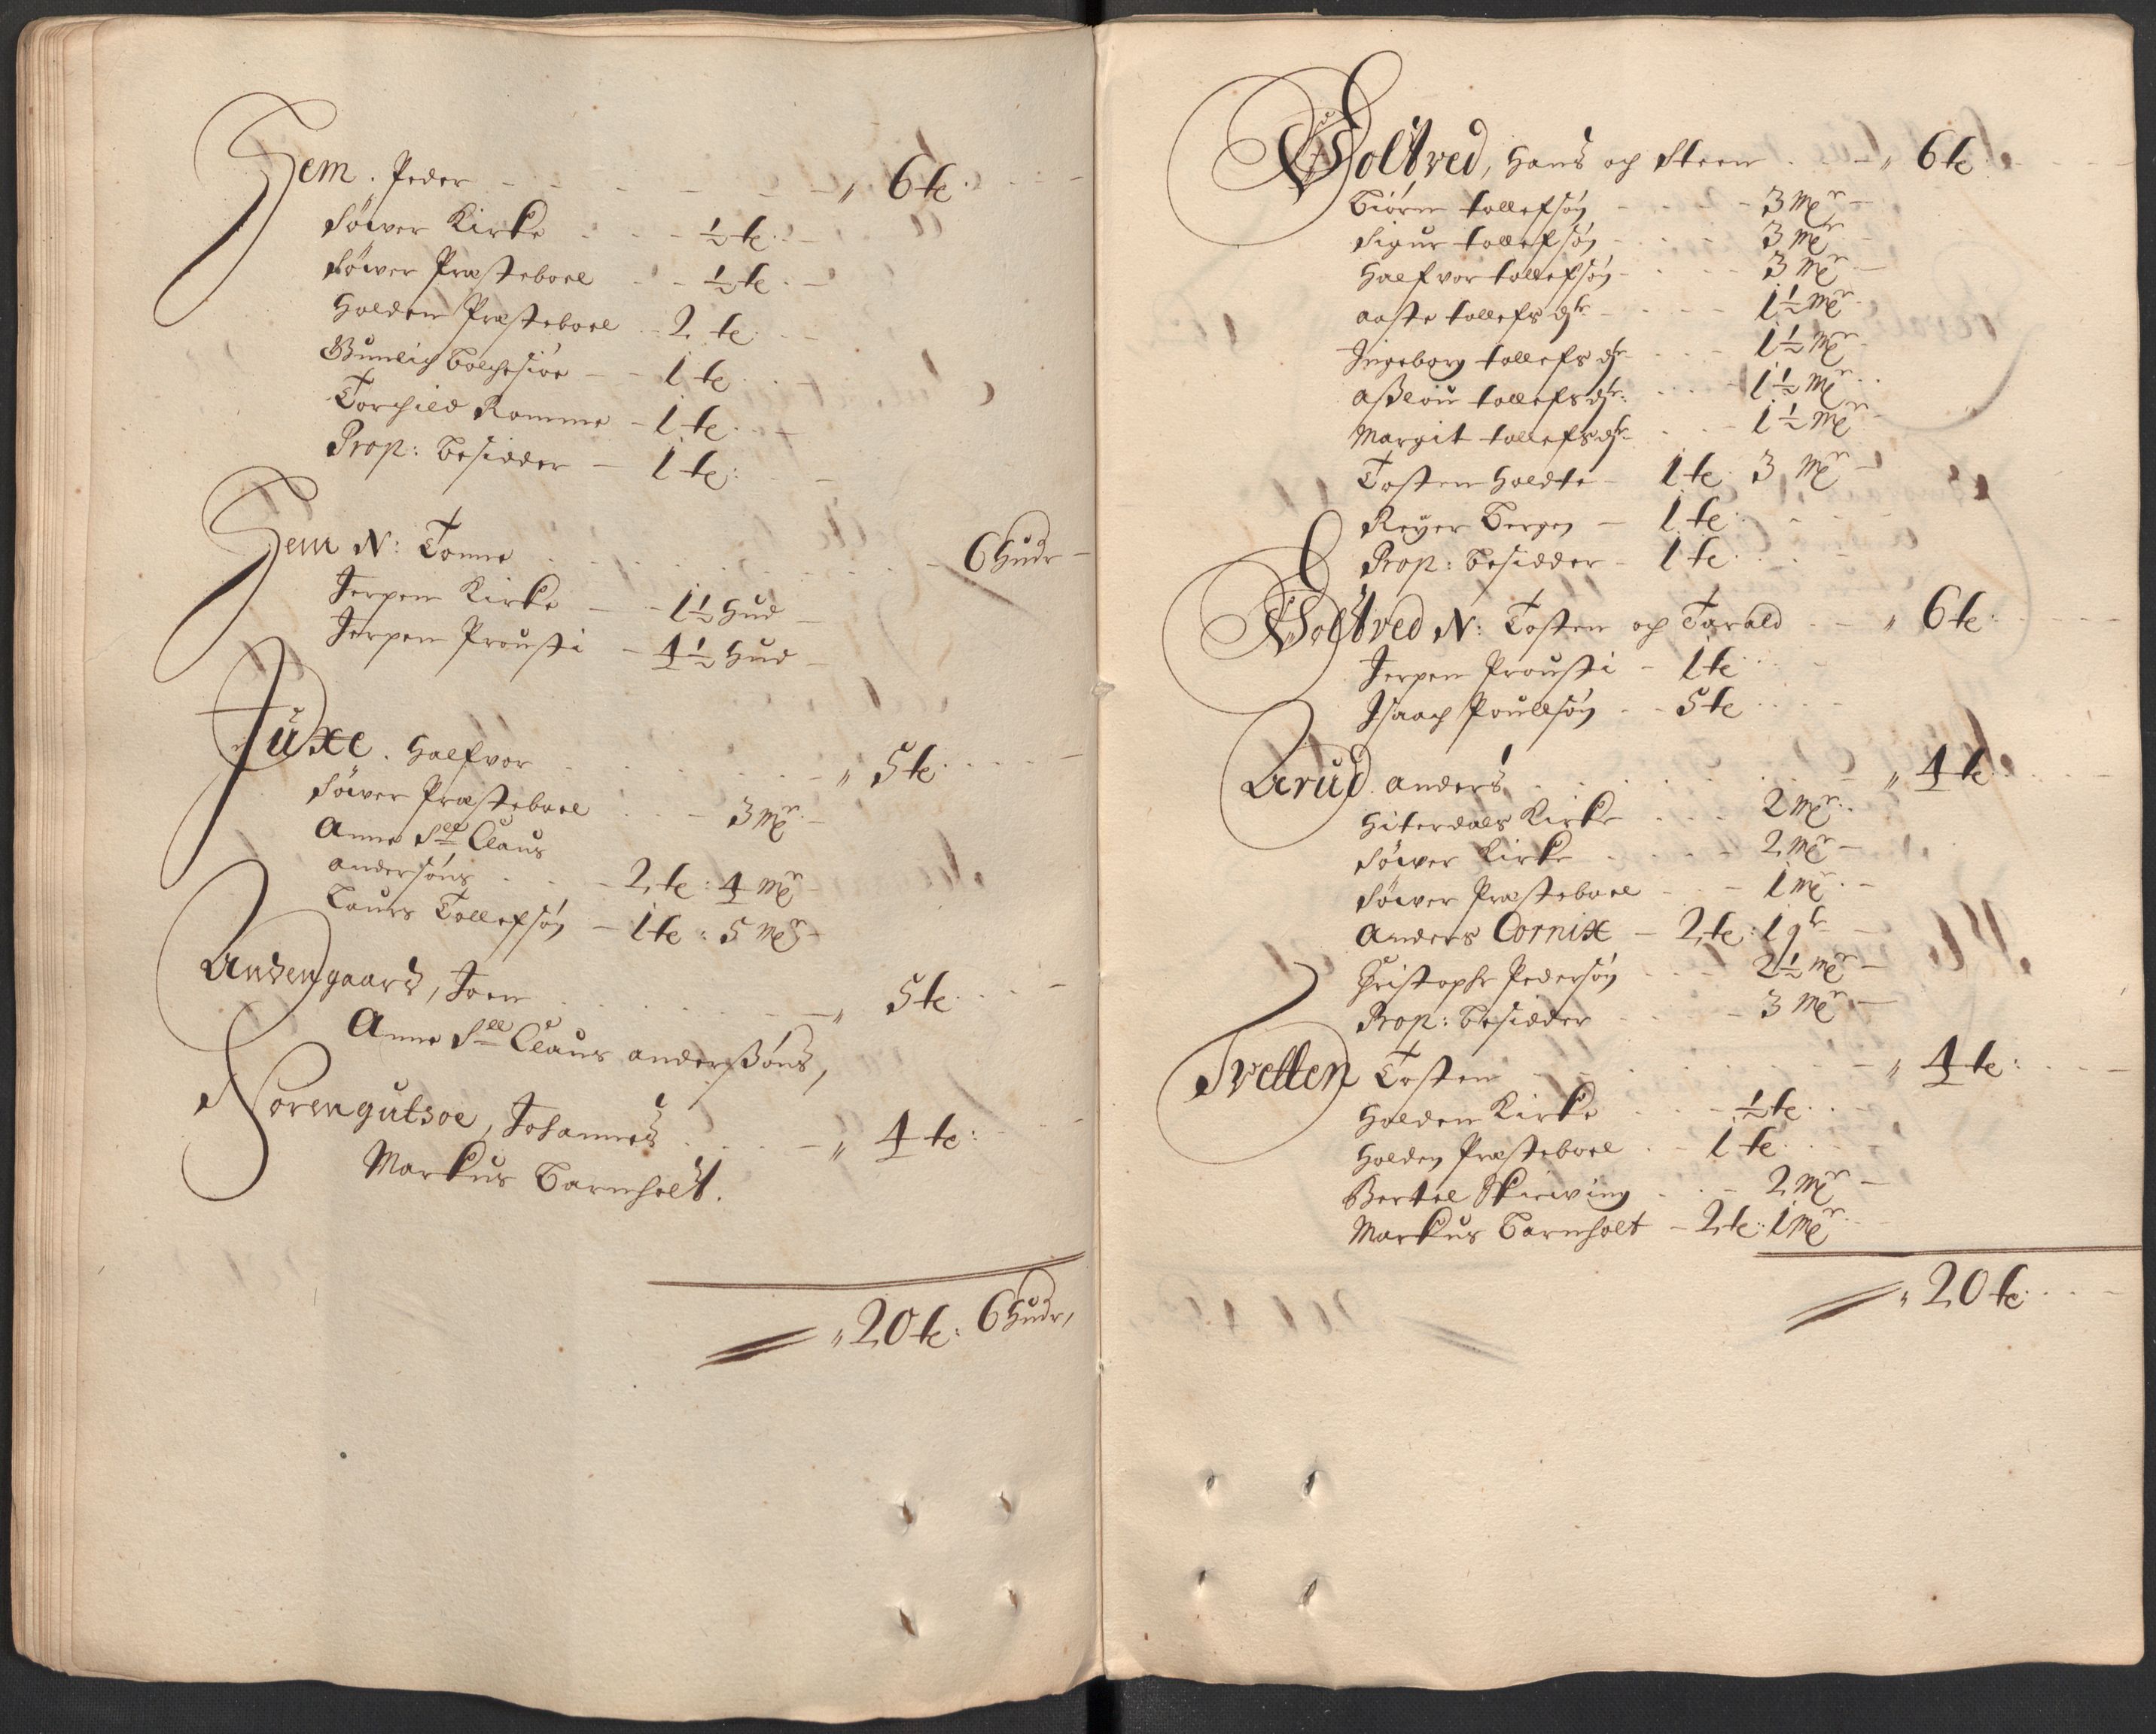 Hem. Peder - - - - - " 6 te.
Söwer Kirke - - - ½ te.
Söwer Præsteboel - - ½ te.
Holden Præsteboel - 2 te.
Gunlig Bolchesiöe - - 1 te.
Torchild Romme - 1 te.
Prop: besidder - 1 te:
Hem N: Tomme - - - 6 Hudr
Jerpen Kirke - - 1½ Hud
Jerpen Prousti - 4½ Hud
Juxe. Halfvor - - - " 5 te.
Söwer Præsteboel - - 3 mꝛ.
Anne Sll Claus
andersöns - - 2 te: 4 mꝛ
Laurs Tollefsön - 1 te: 5 mꝛ
gaard, Joen - - - " 5 te.
Anne Sll Claus anderssöns,
Norengutsoe, Johannes - - " 4 te:
Markus Barnholt.
" 20 te: 6 Hudr,
Woltved, Hans og Steen - - " 6 te.
Biörn tollefsön - - 3 mꝛ
Sigur tollefsön - - 3 mꝛ
Halfvor tollefsön - - 3 mꝛ
Aaste tollefs dtr - - 1½ mꝛ
Ingeborg tollefs dtr - - 1½ mꝛ
Asslou tollefs dtr: - - 1½ mꝛ
Margit tollefs dtr - - 1½ mꝛ
Tosten Holdte - 1 te. 3 mꝛ
Reyer Bergen - 1 te.
Prop: besidder - 1 te.
Woltved N: Tosten og Tarald - - " 6 te:
Jerpen Prousti - 1 te
Isaach Poulsön - - 5 te
Aarud. anders - - - " 4 te.
Hiterdals Kirke - - 2 mꝛ.
Söwer Kirke - - 2 mꝛ
Söwer Præsteboel - - 1 mꝛ.
Anders Cornix - 2 te: 1 qr
Christophr Pedersön - - 2½ mꝛ
Prop: besidder - - 3 mꝛ
Tvetten Tosten - - - " 4 te:
Holden Kirke - - ½ te.
Holden Præsteboel - - 1 te.
Bertel Skierving - - 2 mꝛ
Markus Barnholt - 2 te: 1 mꝛ.
" 20 te.